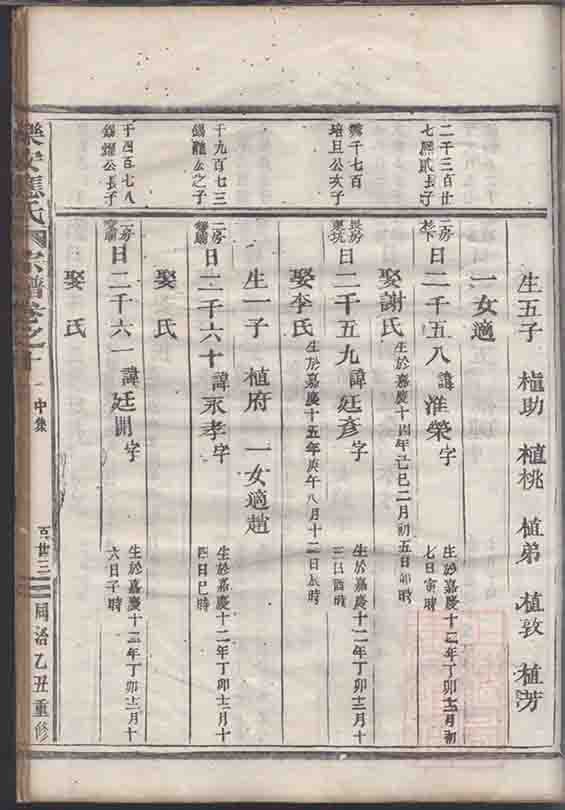 生五子 植助 植桃 植弟 植敦 植芳
一女適
二千三百廿
七 熙貳長子
二房
日二千五八 諱淮榮字
生於嘉慶十二年丁卯十二月初
七日寅時
娶謝氏
生於嘉慶十四年己巳二月初五日卯時
千七百
培旦公次子
長房
日二千五九 諱廷彥字
生於嘉慶十二年丁卯十二月十
三日酉時
娶李氏
生於嘉慶十五年庚午八月十二日辰時
生一子 植府 一女適趙
千九百七三
錫龍公之子
二房
日二千六十 諱永孝字
生於嘉慶十二年丁卯十二月十
四日巳時
娶 氏
千四百七八
錫燿公長子
二房
日二千六一 諱廷開字
生於嘉慶十二年丁卯十二月十
六日子時
娶 氏
樂安應氏 宗譜卷之十一 中集
百廿三
同治乙丑重修